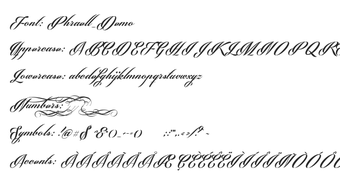 Font: Phraell_Demo
Uppercase: ABCDEFGHIJKLMNOPQR
Lowercase: abcdefghijklmnopqrstuvwxyz
Numbers:
Symbols:
Accents: ÀÁÂÃÄÅ ÇÈÉÊËÌÍÎÏÑÒÓÔ